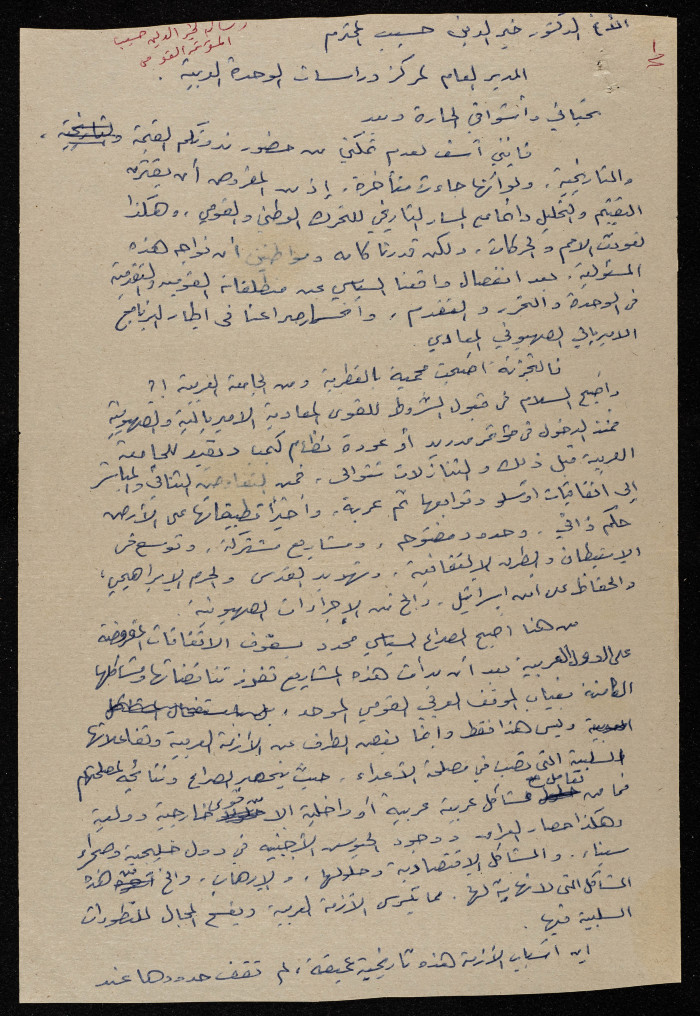 رسالة لخير الدين حسيب
المؤتمر القومي
١
الأخ الدكتور خير الدين حسيب المحترم
المدير العام لمركز دراسات الوحدة العربية .
تحياتي وأشواقي الحارة وبعد
فإنني آسف لعدم تمكني من حضور ندوتكم القيمة والتاريخية ،
والتاريخية ، ولو أنها جاءت متأخرة ، إذ من المفروض أن يقترن
التقييم والتحليل دائما مع المسار التاريخي للتحرك الوطني والقومي ، وهكذا
تعودت الأمم والحركات ، ولكن قدرنا كأمة ومواطنين أن نواجه هذه
المسئولية ، بعد انفصال واقعنا السياسي عن منطلقاته القومية والتقدمية
في الوحدة والتحرر والتقدم ، وانحسار صراعنا في إطار البرنامج
الامبريالي الصهيوني المعادي
فالتجزئة أضحت محمية بالقطرية ومن الجامعة العربية !؟
وأضحى السلام في قبول الشروط للقوى المعادية الامبريالية والصهيونية
فمنذ الدخول في مؤتمر مدريد أو عودة نظام كمب ديفيد للجامعة
العربية قبل ذلك والتنازلات تتوالى ، فمن التفاوض الثنائي والمباشر
إلى اتفاقيات اوسلو وتوابعها ثم عربة ، وأخيرا تطبيقاتها على الأرض
حكم ذاتي ، وحدود مفتوحة ، ومشاريع مشتركة ، وتوسع في
الاستيطان والطرق الالتفافية ، وتهويد القدس والحرم الإبراهيمي ،
والحفاظ على أمن اسرائيل ، والخ من الإجراءات الصهيونية .
من هنا أصبح الصراع السياسي محدد بسقوف الاتفاقات المفروضة
على الدول العربية بعد أن بدأت هذه المشاريع تفرز تناقضاتها ومشاكلها
الكامنة بغياب الموقف العربي القومي الموحد ، بل استفحال المشاكل
العربية وليس هذا فقط وانما بغض الطرف عن الأزمة العربية وتفاعلاتها
السلبية التي تصب في مصلحة الأعداء ، حيث ينحصر الصراع ونتائجه لمصلحتهم
فما من مشاكل عربية عربية أو داخلية إلا خارجية ودولية
وهكذا حصار العراق ووجود الجيوش الأجنبية في دول خليجية وصحراء
سيناء ، والمشاكل الاقتصادية وحلولها ، والإرهاب ، والخ من هذه
المشاكل التي لا نهاية لها ، مما يكرس الأزمة العربية ويفسح المجال للتطورات
السلبية فيها .
إن أسباب الأزمة هذه تاريخية عميقة ، لم تقف حدودها عند